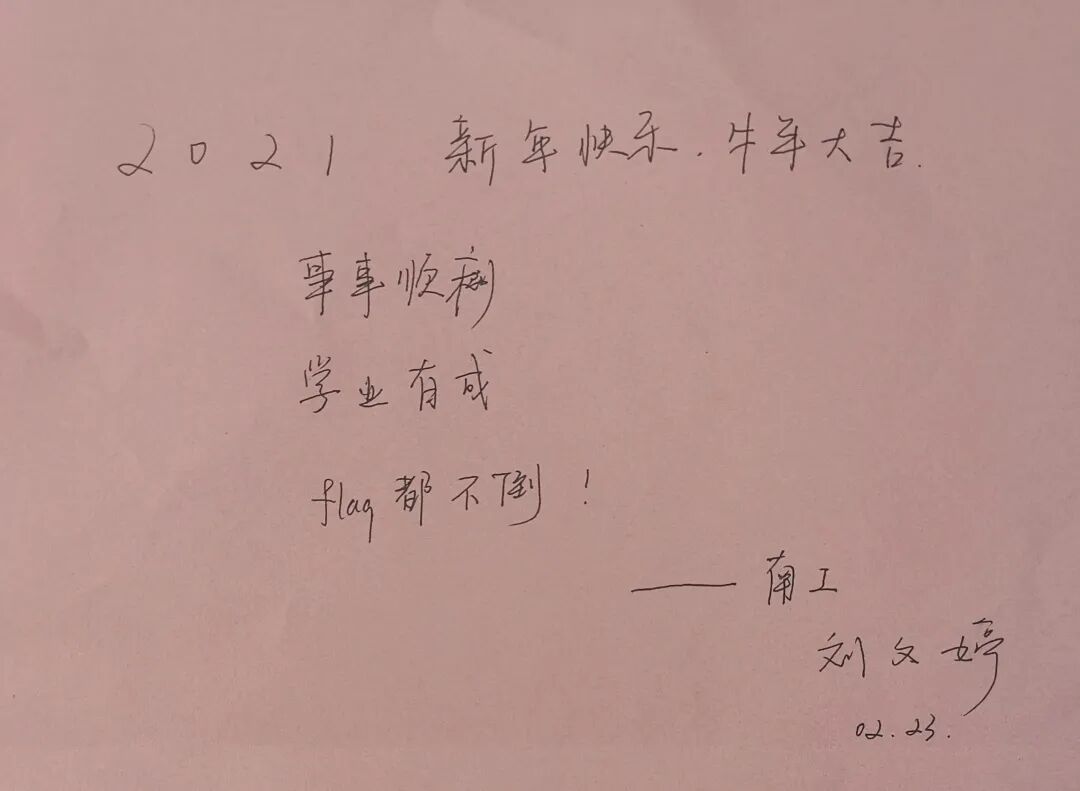 2021 新年快乐.牛年大吉.
事事顺利
学业有成
flag都不倒!
——南工
刘文婷
02.23.